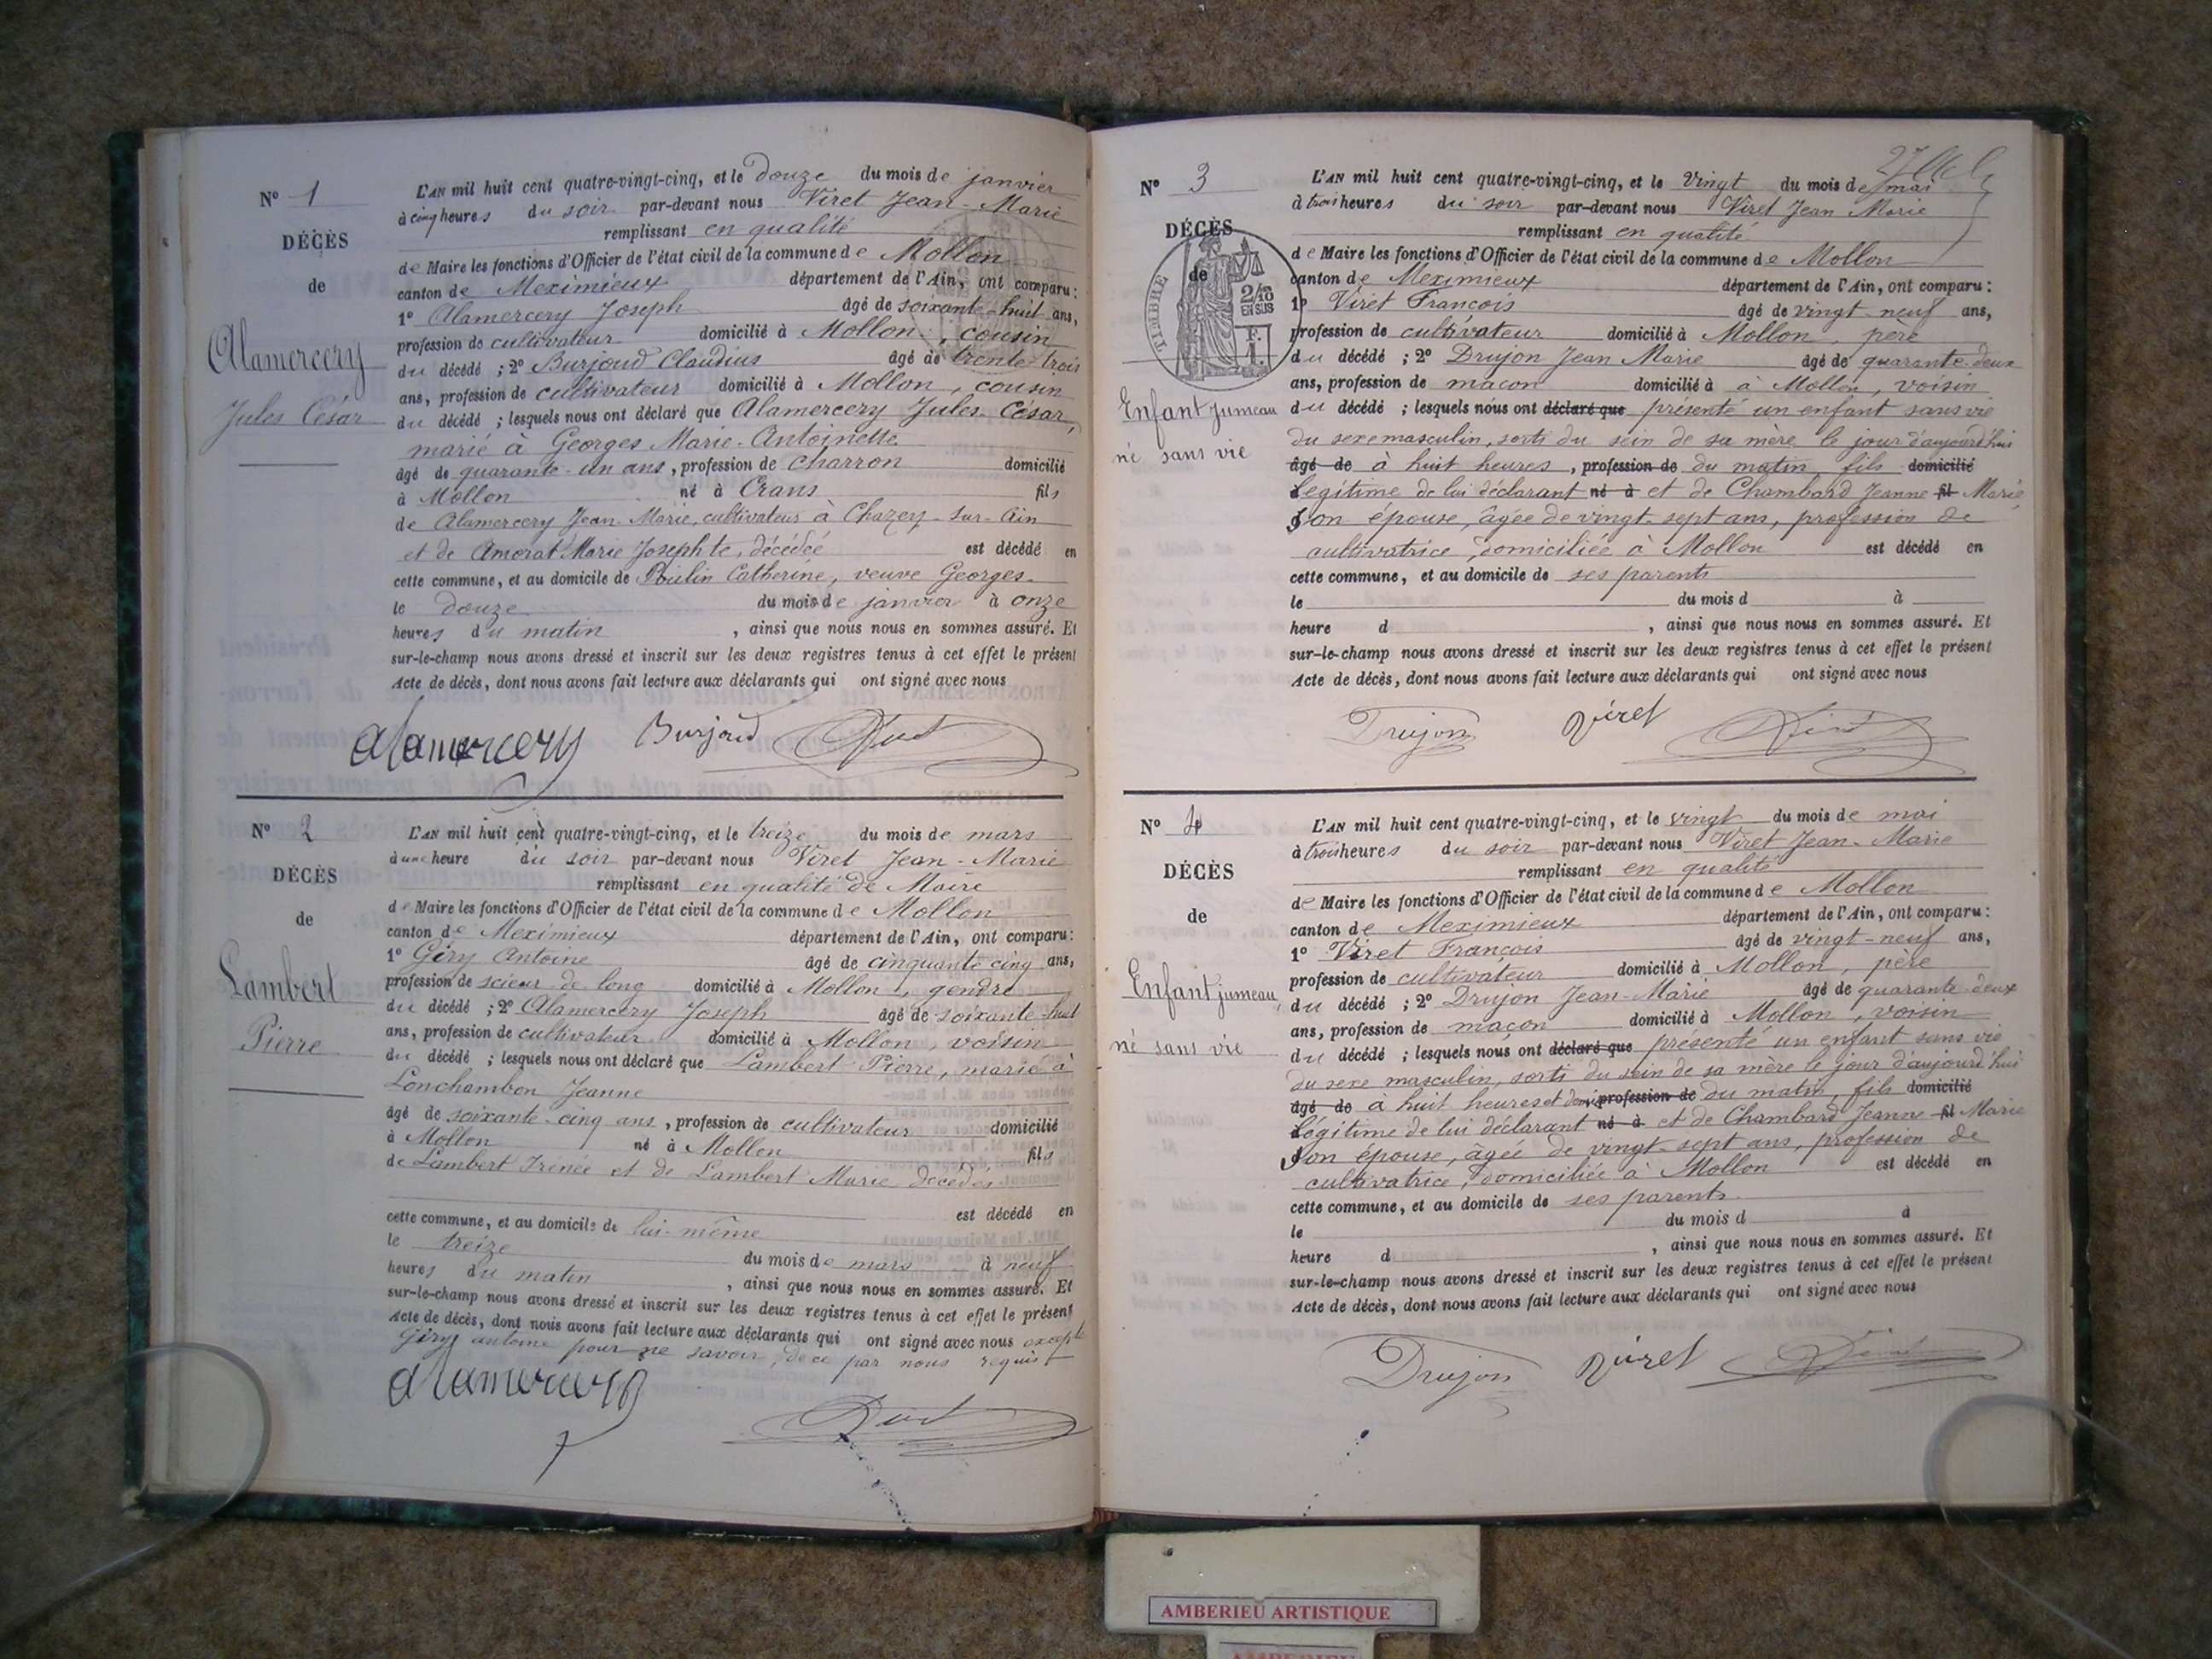 N° 1
DÉCÈS
de
Alamercery
Jules César
L'AN mil huit cent quatre-vingt-cinq, et le douze du mois de janvier
à cinq heures du soir par-devant nous Viret Jean-Marie
remplissant en qualité
de Maire les fonctions d'Officier de l'état civil de la commune de Mollon
canton de Meximieux département de l'Ain, ont comparu :
1° Alamercery Joseph âgé de soixante-huit ans,
profession de cultivateur domicilié à Mollon, cousin
du décédé ; 2° Burjoud Claudius âgé de trente-trois
ans, profession de cultivateur domicilié à Mollon, cousin
du décédé ; lesquels nous ont déclaré que Alamercery Jules César,
marié à Georges Marie-Antoinette
âgé de quarante-un ans, profession de charron domicilié
à Mollon né à Crans fils
de Alamercery Jean-Marie, cultivateur à Chazey-sur-Ain
et de Amorat Marie Josephte, décédée est décédé en
cette commune, et au domicile de Poulin Catherine, veuve Georges
le douze du mois de janvier à onze
heures du matin, ainsi que nous nous en sommes assuré. Et
sur-le-champ nous avons dressé et inscrit sur les deux registres tenus à cet effet le présent
Acte de décès, dont nous avons fait lecture aux déclarants qui ont signé avec nous
Alamercery Burjoud Viret
N° 2
DÉCÈS
de
Lambert
Pierre
L'AN mil huit cent quatre-vingt-cinq, et le treize du mois de mars
à une heure du soir par-devant nous Viret Jean-Marie
remplissant en qualité de Maire
de Maire les fonctions d'Officier de l'état civil de la commune de Mollon
canton de Meximieux département de l'Ain, ont comparu :
1° Giry Antoine âgé de cinquante cinq ans,
profession de scieur de long domicilié à Mollon, gendre
du décédé ; 2° Alamercery Joseph âgé de soixante-huit
ans, profession de cultivateur domicilié à Mollon, voisin
du décédé ; lesquels nous ont déclaré que Lambert Pierre, marié à
Lonchambon Jeanne
âgé de soixante-cinq ans, profession de cultivateur domicilié
à Mollon né à Mollon fils
de Lambert Irénée et de Lambert Marie décédés
est décédé en
cette commune, et au domicile de lui-même
le treize du mois de mars à neuf
heures du matin, ainsi que nous nous en sommes assuré. Et
sur-le-champ nous avons dressé et inscrit sur les deux registres tenus à cet effet le présent
Acte de décès, dont nous avons fait lecture aux déclarants qui ont signé avec nous excepté
Giry antoine pour ne savoir, de ce par nous requis
Alamercery
Viret
N° 3
DÉCÈS
de
TIMBRE
2/10
EN SUS
F.
1
Enfant jumeau
né sans vie
L'AN mil huit cent quatre-vingt-cinq, et le vingt du mois de mai
à trois heures du soir par-devant nous Viret Jean Marie
remplissant en qualité
de Maire les fonctions d'Officier de l'état civil de la commune de Mollon
canton de Meximieux département de l'Ain, ont comparu :
1° Viret François âgé de vingt-neuf ans,
profession de cultivateur domicilié à Mollon, père
du décédé ; 2° Drujon Jean Marie âgé de quarante-deux
ans, profession de maçon domicilié à à Mollon, voisin
du décédé ; lesquels nous ont déclaré que présenté un enfant sans vie
du sexe masculin, sorti du sein de sa mère le jour d'aujourd'hui
âgé de à huit heures, profession de du matin, fils domicilié
légitime de lui déclarant né à et de Chambard Jeanne fil Marie
son épouse, âgée de vingt-sept ans, profession de
cultivatrice, domiciliée à Mollon est décédé en
cette commune, et au domicile de ses parents
le du mois d à
heure d , ainsi que nous nous en sommes assuré. Et
sur-le-champ nous avons dressé et inscrit sur les deux registres tenus à cet effet le présent
Acte de décès, dont nous avons fait lecture aux déclarants qui ont signé avec nous
Drujon Viret Viret
N° 4
DÉCÈS
de
Enfant jumeau
né sans vie
L'AN mil huit cent quatre-vingt-cinq, et le vingt du mois de mai
à trois heures du soir par-devant nous Viret Jean-Marie
remplissant en qualité
de Maire les fonctions d'Officier de l'état civil de la commune de Mollon
canton de Meximieux département de l'Ain, ont comparu :
1° Viret François âgé de vingt-neuf ans,
profession de cultivateur domicilié à Mollon, père
du décédé ; 2° Drujon Jean-Marie âgé de quarante-deux
ans, profession de maçon domicilié à Mollon, voisin
du décédé ; lesquels nous ont déclaré que présenté un enfant sans vie
du sexe masculin, sorti du sein de sa mère le jour d'aujourd'hui
âgé de à huit heures et demie profession de du matin, fils domicilié
légitime de lui déclarant né à et de Chambard Jeanne fil Marie
son épouse, âgée de vingt-sept ans, profession de
cultivatrice, domiciliée à Mollon est décédé en
cette commune, et au domicile de ses parents
le du mois d à
heure d , ainsi que nous nous en sommes assuré. Et
sur-le-champ nous avons dressé et inscrit sur les deux registres tenus à cet effet le présent
Acte de décès, dont nous avons fait lecture aux déclarants qui ont signé avec nous
Drujon Viret Viret
AMBERIEU ARTISTIQUE
AMBERIEU